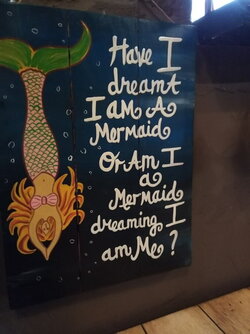 Have I
dreamt
I am A
Mermaid
Or Am I
a
Mermaid
dreaming I
am Me ?